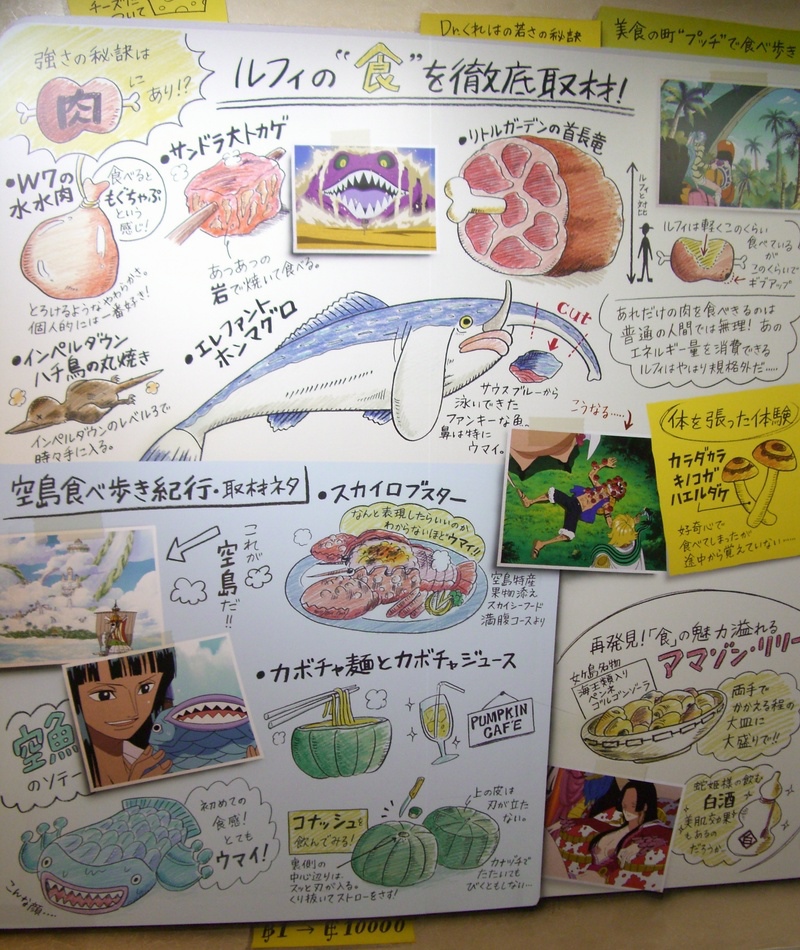 チーズに
ついて
Dr.くれはの若さの秘訣
美食の町"プッチ"で食べ歩き
強さの秘訣は
肉
に
あり!?
ルフィの"食"を徹底取材!
•W7の
水水肉
食べると
もぐちゃぷ
という
感じ!
とろけるようなやわらかさ。
個人的には一番好き!
•サンドラ大トカゲ
あつあつの
岩で焼いて食べる。
•リトルガーデンの首長竜
ルフィ対比
ルフィは軽くこのくらい
食べている
が
このくらいで
ギブアップ
あれだけの肉を食べきるのは
普通の人間では無理! あの
エネルギー量を消費できる
ルフィはやはり規格外だ……
•インペルダウン
ハチ鳥の丸焼き
インペルダウンのレベル3で
時々手に入る。
•エレファント
ホンマグロ
cut
サウスブルーから
泳いできた
ファンキーな魚。
鼻は特に
ウマイ。
こうなる……
体を張った体験
カラダカラ
キノコガ
ハエルダケ
好奇心で
食べてしまったが
途中から覚えていない……
空島食べ歩き紀行・取材ネタ
これが
空島だ!!
•スカイロブスター
なんと表現したらいいのか
わからないほどウマイ!!
空島特産
果物添え
スカイシーフード
満腹コースより
•カボチャ麺とカボチャジュース
PUMPKIN
CAFE
空魚
のソテー
初めての
食感!
とても
ウマイ!
こんな顔……
コナッシュを
飲んでみる!
裏側の
中心辺りは
スッと刃が入る。
くり抜いてストローをさす!
上の皮は
刃が立た
ない。
カナヅチで
たたいても
びくともしない…
再発見!「食」の魅力溢れる
アマゾン・リリー
女ヶ島名物
海王類入り
ペンネ
ゴルゴンゾーラ
両手で
かかえる程の
大皿に
大盛りで!!
蛇姫様の飲む
白酒
美肌効果
もあるの
だろうか
1 → 10000